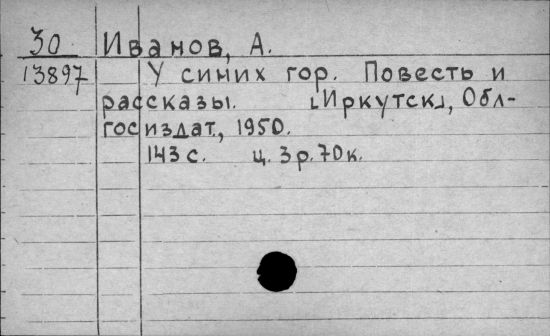 30 Иванов, А.
13897 У синих гор. Повесть и
рассказы. [Иркутск], Обл-
госиздат, 1950.
143 с. ц. 3 р. 70 к.